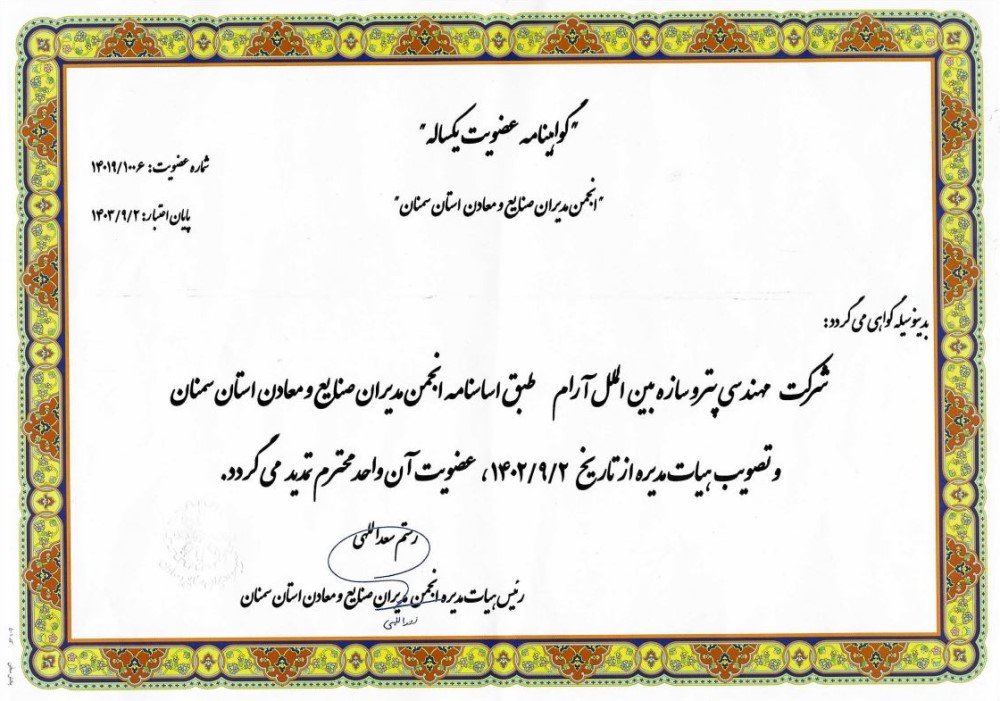 "گواهینامه عضویت یکساله"
شماره عضویت: ۱۴۰۱۹/۱۰۰۶
"انجمن مدیران صنایع و معادن استان سمنان"
پایان اعتبار: ۱۴۰۳/۹/۲
بدینوسیله گواهی می گردد:
شرکت مهندسی پترو سازه بین الملل آرام طبق اساسنامه انجمن مدیران صنایع و معادن استان سمنان
و تصویب هیات مدیره از تاریخ ۱۴۰۲/۹/۲، عضویت آن واحد محترم تمدید می گردد.
رستم سعداللهی
رئیس هیات مدیره انجمن مدیران صنایع و معادن استان سمنان